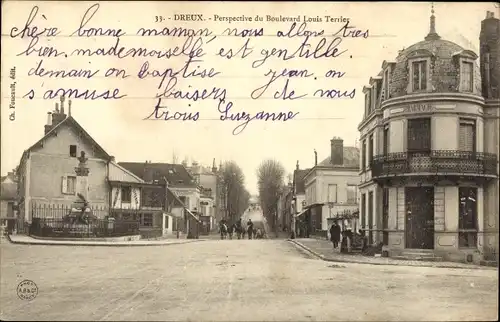 33. - DREUX. - Perspective du Boulevard Louis Terrier
chère bonne maman nous allons très
bien. mademoiselle est gentille.
demain on baptise jean. on
s'amuse baisers de nous
trois Suzanne
Ch. Foucault, édit.